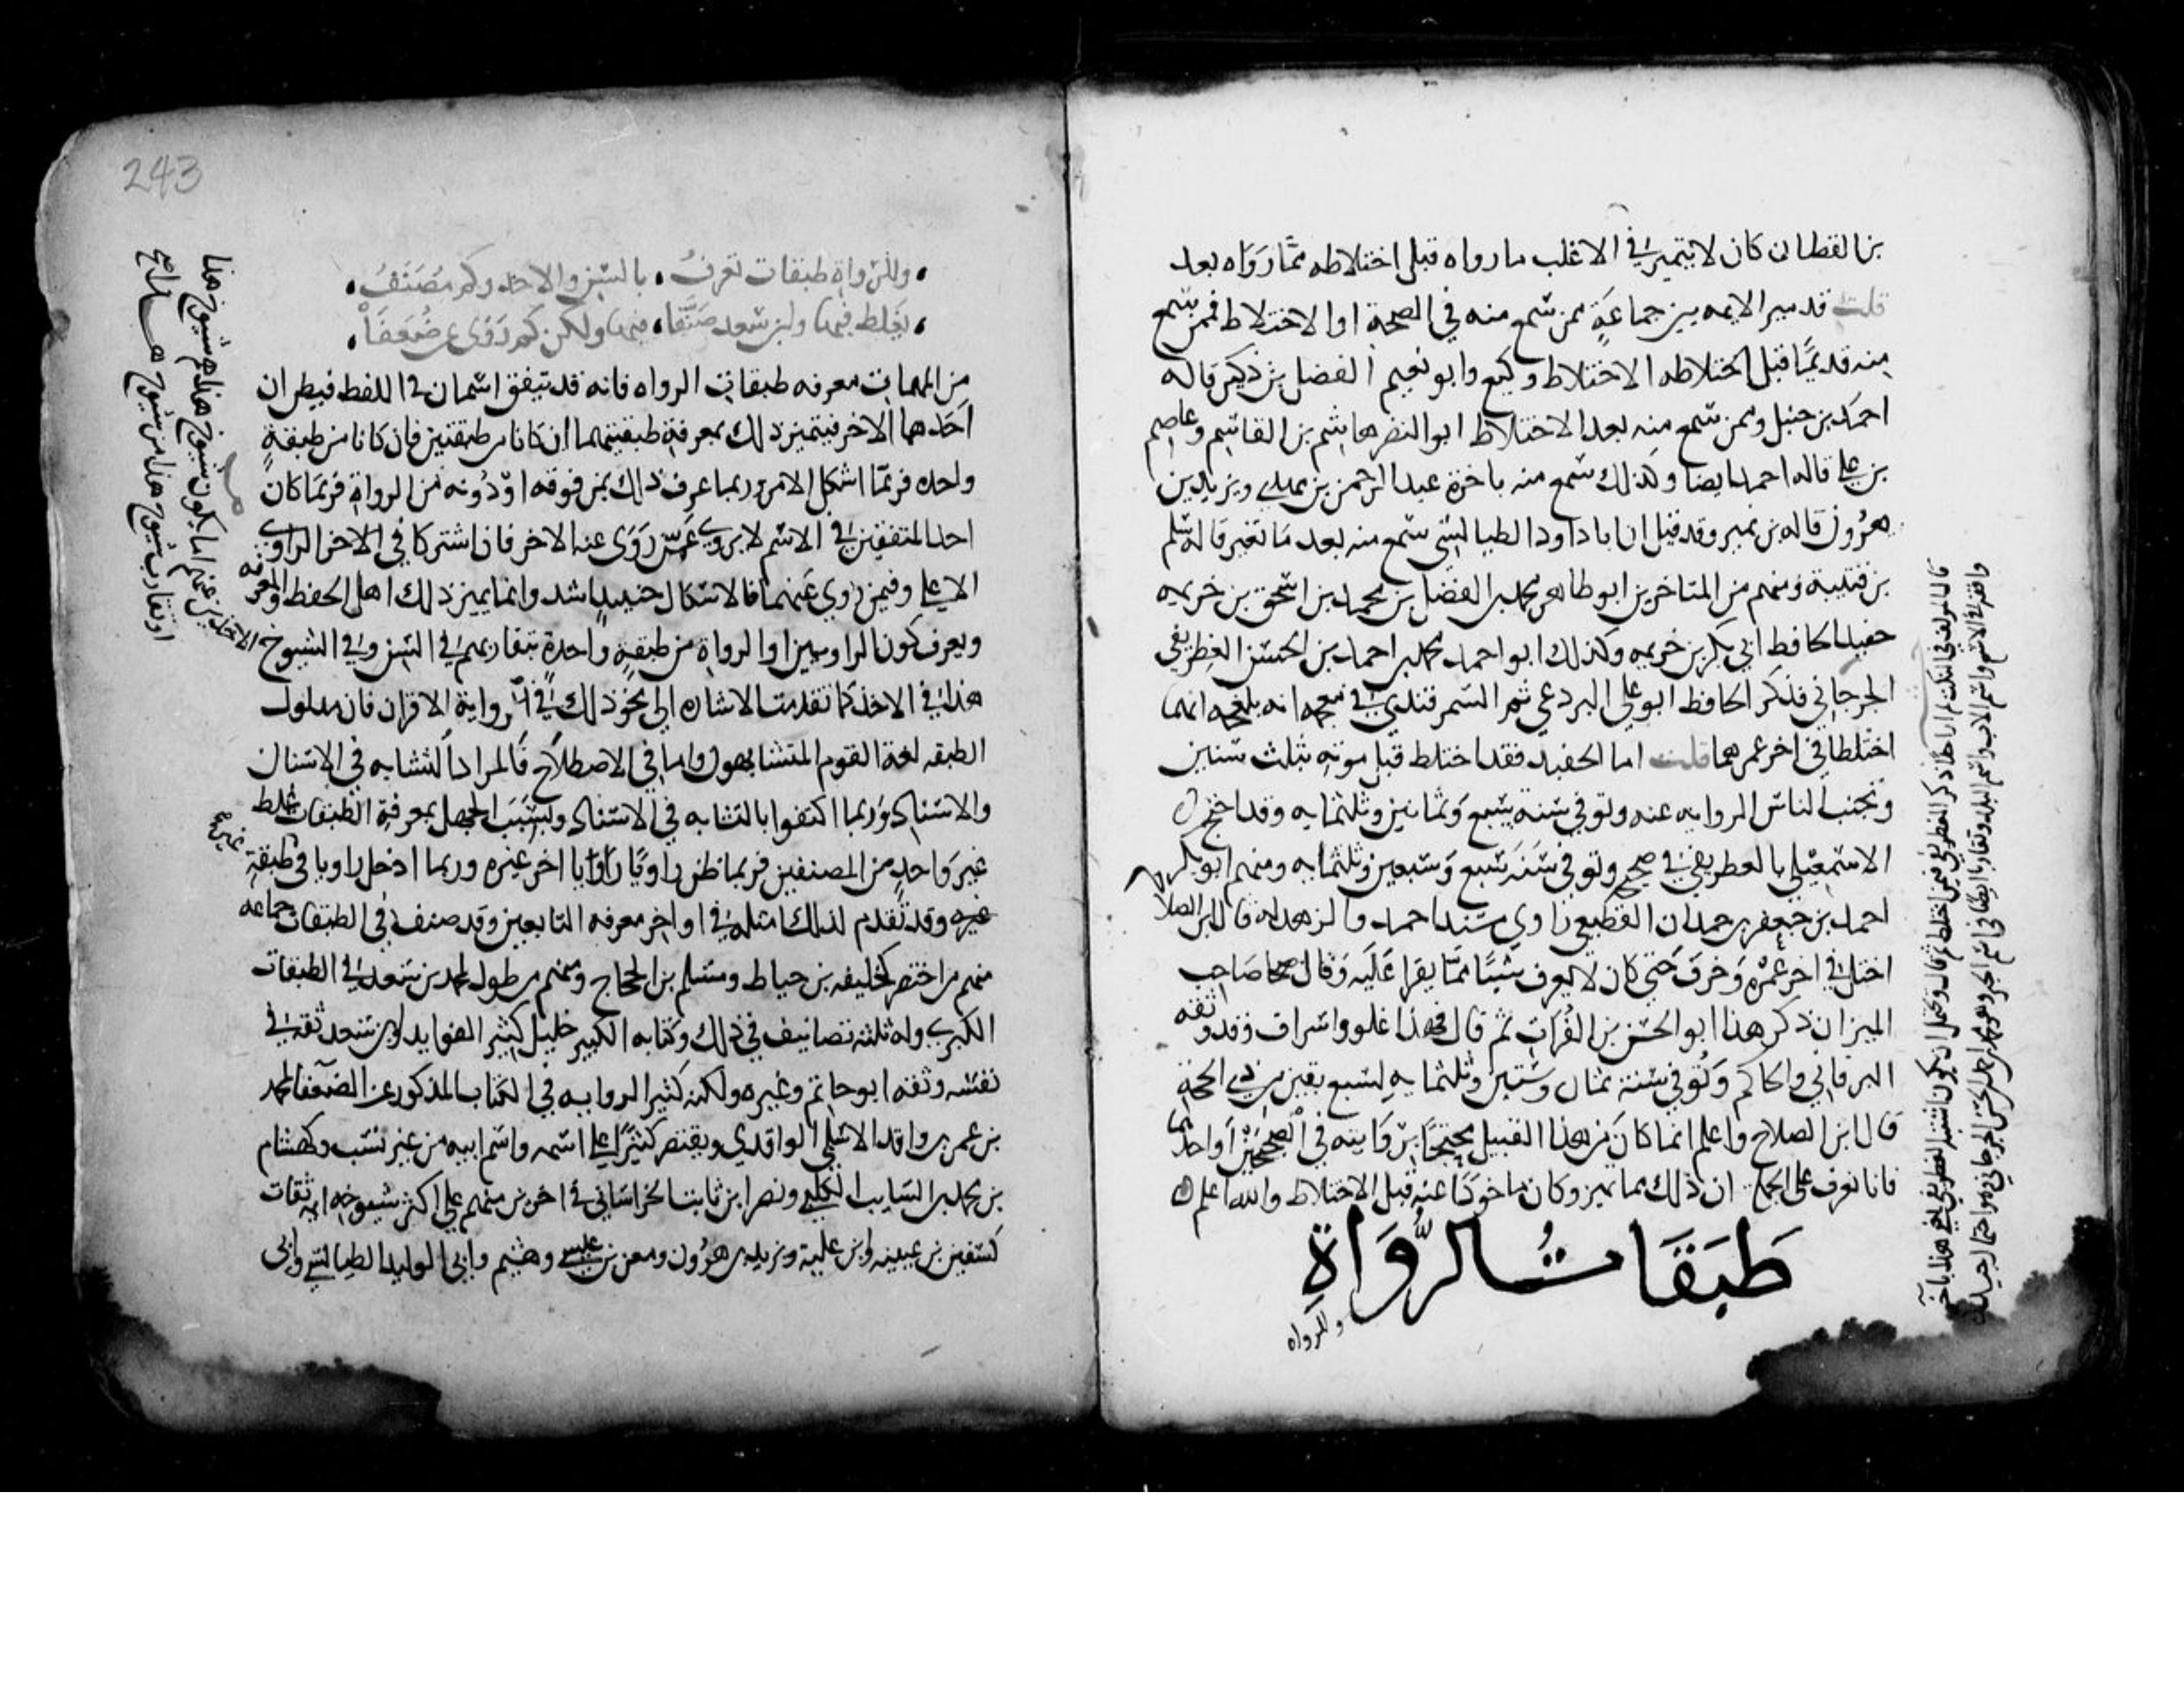 بن القطان كان لا يتميز في الاغلب ما رواه قبل اختلاطه مما رواه بعد
قلت قد ميز الايمه بين جماعة ممن سمع منه في الصحة او الاختلاط فممن سمع
منه قديما قبل اختلاطه الاختلاط وكيع وابو نعيم الفضل بن دكين قاله
احمد بن حنبل وممن سمع منه بعد الاختلاط ابو النضر هاشم بن القاسم وعاصم
بن علي قاله احمد ايضا وكذلك سمع منه باخرة عبد الرحمن بن مهدي ويزيد بن
هرون قاله بن نمير وقد قيل ان ابا داود الطيالسي سمع منه بعد ما تغير قاله سلم
بن قتيبة ومنهم من المتاخرين ابو طاهر محمد بن الفضل بن محمد بن اسحق بن خزيمه
حفيد الحافظ ابي بكر بن خزيمه وكذلك ابو احمد محمد بن احمد بن الحسين الغطريفي
الجرجاني فذكر الحافظ ابو علي البردعي ثم السمرقندي في معجمه انه بلغه انهما
اختلطا في اخر عمرهما قلت اما الحفيد فقد اختلط قبل موته بثلث سنين
وتجنب الناس الروايه عنه وتوفي سنة سبع وثمانين وثلثمايه وقد احتج
الاسمعيلي بالغطريفي في صحيحه وتوفي سنة سبع وسبعين وثلثمايه ومنهم ابو بكر
احمد بن جعفر بن حمدان القطيعي راوي مسند احمد والزهد له قال ابن الصلاح
اختل في اخر عمره وخرف حتى كان لا يعرف شيئا مما يقرا عليه وقال صاحب
الميزان ذكر هذا ابو الحسن بن الفرات ثم قال فهذا غلو واسراف وقد وثقه
البرقاني والحاكم وتوفي سنة ثمان وستين وثلثمايه لسبع بقين من ذي الحجة
قال ابن الصلاح واعلم انما كان من هذا القبيل محتجا بروايته في الصحيحين او احدهما
فانا نعرف على الجملة ان ذلك مما تميز وكان ماخوذا عنه قبل الاختلاط والله اعلم
طَبَقَاتُ الرُّوَاةِ
وللرواه
243
وللرواة طبقات تعرف . بالسن والاخذ وكم مصنف
يغلط فيها وابن سعد صنفا . فيها ولكن كم روى عن ضعفا
من المهمات معرفه طبقات الرواه فانه قد يتفق اسمان في اللفظ فيظن ان
احدهما الاخر فيتميز ذلك بمعرفة طبقتيهما ان كانا من طبقتين فان كانا من طبقة
واحده فربما اشكل الامر وربما عرف ذلك بمن فوقه او دونه من الرواة فربما كان
احد المتفقين في الاسم لا يروي عمن روى عنه الاخر فان اشتركا في الاخر الراوي
الاعلي وفيمن روي عنهما فالاشكال حينيد اشد وانما يميز ذلك اهل الحفظ والمعرفه
ويعرف كون الراويين او الرواة من طبقة واحدة بتقاربهم في السن وفي الشيوخ
هذا في الاخذ كما تقدمت الاشاره الي نحو ذلك في رواية الاقران فان مدلول
الطبقه لغة القوم المتشابهون واما في الاصطلاح فالمراد التشابه في الاسنان
والاسناد وربما اكتفوا بالتشابه في الاسناد وبسبب الجهل بمعرفة الطبقات غلط
غير واحد من المصنفين فربما ظن راويا راويا اخر غيره وربما ادخل راويا في طبقة
غيره وقد تقدم لذلك امثله في اواخر معرفه التابعين وقد صنف في الطبقات جماعه
منهم من اختصر كخليفه بن خياط ومسلم بن الحجاج ومنهم من طول كمحمد بن سعد في الطبقات
الكبري وله ثلثه تصانيف في ذلك وكتابه الكبير جليل كثير الفوايد وابن سعد ثقه في
نفسه وثقه ابو حاتم وغيره ولكنه كثير الروايه في الكتاب المذكور عن الضعفا كمحمد
بن عمر بن واقد الاسلمي الواقدي ويقتصر كثيرا علي اسمه واسم ابيه من غير نسب وكهشام
بن محمد بن السايب الكلبي ونصر ابن ثابت الخراساني في اخرين منهم علي اكثر شيوخه ايمة ثقات
كسفين بن عيينه وابن علية ويزيد بن هرون ومعن بن عيسى وهشيم وابي الوليد الطيالسي وابي